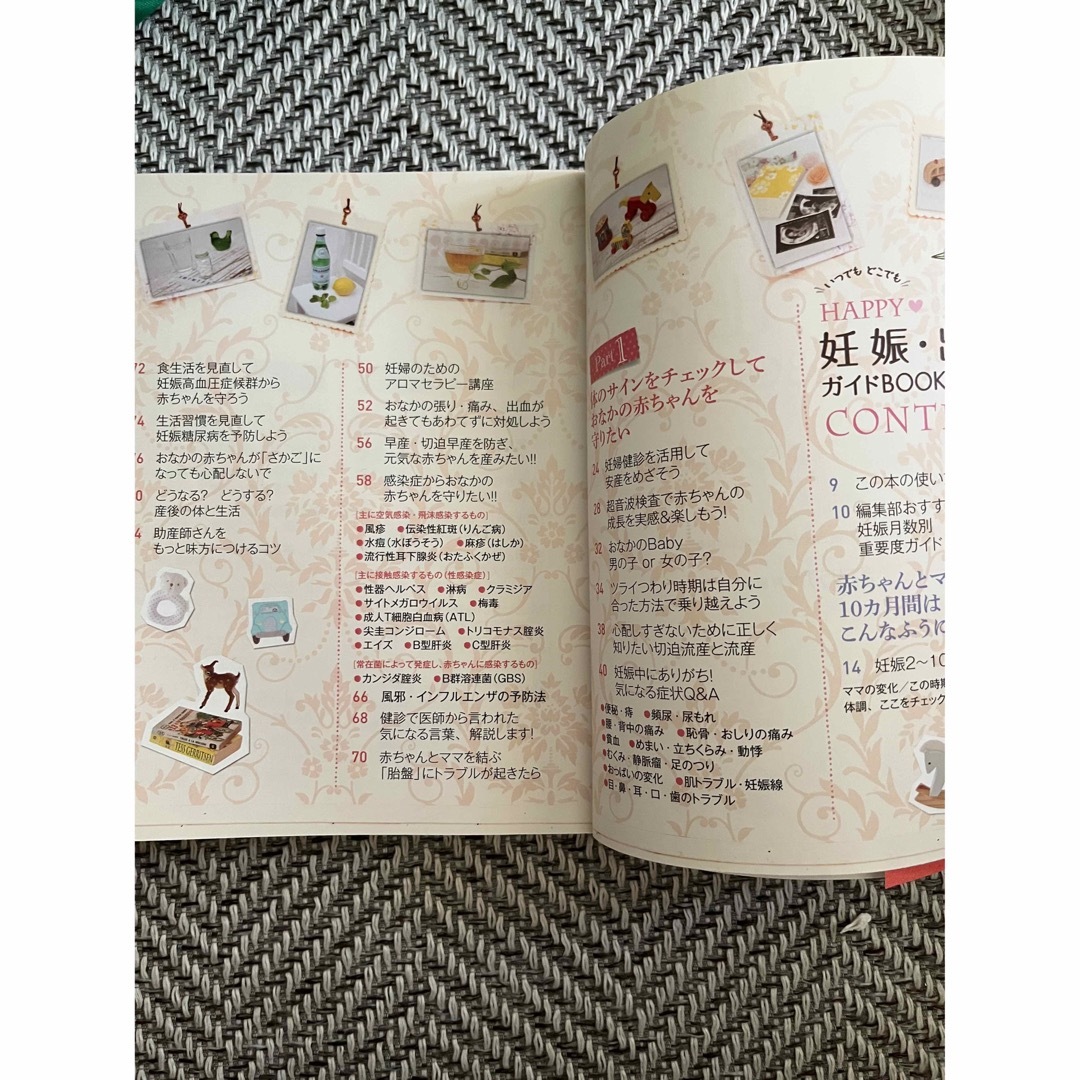 いつでも どこでも
HAPPY♥
妊娠・
ガイドBOOK
CONTE
9 この本の使い
10 編集部おすす
妊娠月数別
重要度ガイド
赤ちゃんとマ
10カ月間は
こんなふうに
14 妊娠2〜10
ママの変化／この時期
体調、ここをチェック
Part1
体のサインをチェックして
おなかの赤ちゃんを
守りたい
24 妊婦健診を活用して
安産をめざそう
28 超音波検査で赤ちゃんの
成長を実感&楽しもう!
32 おなかのBaby
男の子 or 女の子?
34 ツライつわり時期は自分に
合った方法で乗り越えよう
38 心配しすぎないために正しく
知りたい切迫流産と流産
40 妊娠中にありがち!
気になる症状Q&A
●便秘・痔 ●頻尿・尿もれ
●腰・背中の痛み ●恥骨・おしりの痛み
●貧血 ●めまい・立ちくらみ・動悸
●むくみ・静脈瘤・足のつり
●おっぱいの変化 ●肌トラブル・妊娠線
●目・鼻・耳・口・歯のトラブル
50 妊婦のための
アロマセラピー講座
52 おなかの張り・痛み、出血が
起きてもあわてずに対処しよう
56 早産・切迫早産を防ぎ、
元気な赤ちゃんを産みたい!!
58 感染症からおなかの
赤ちゃんを守りたい!!
[主に空気感染・飛沫感染するもの]
●風疹 ●伝染性紅斑(りんご病)
●水痘(水ぼうそう) ●麻疹(はしか)
●流行性耳下腺炎(おたふくかぜ)
[主に接触感染するもの(性感染症)]
●性器ヘルペス ●淋病 ●クラミジア
●サイトメガロウイルス ●梅毒
●成人T細胞白血病(ATL)
●尖圭コンジローム ●トリコモナス腟炎
●エイズ ●B型肝炎 ●C型肝炎
[常在菌によって発症し、赤ちゃんに感染するもの]
●カンジダ腟炎 ●B群溶連菌(GBS)
66 風邪・インフルエンザの予防法
68 健診で医師から言われた
気になる言葉、解説します!
70 赤ちゃんとママを結ぶ
「胎盤」にトラブルが起きたら
72 食生活を見直して
妊娠高血圧症候群から
赤ちゃんを守ろう
4 生活習慣を見直して
妊娠糖尿病を予防しよう
6 おなかの赤ちゃんが「さかご」に
なっても心配しないで
0 どうなる? どうする?
産後の体と生活
4 助産師さんを
もっと味方につけるコツ
TESS GERRITSEN